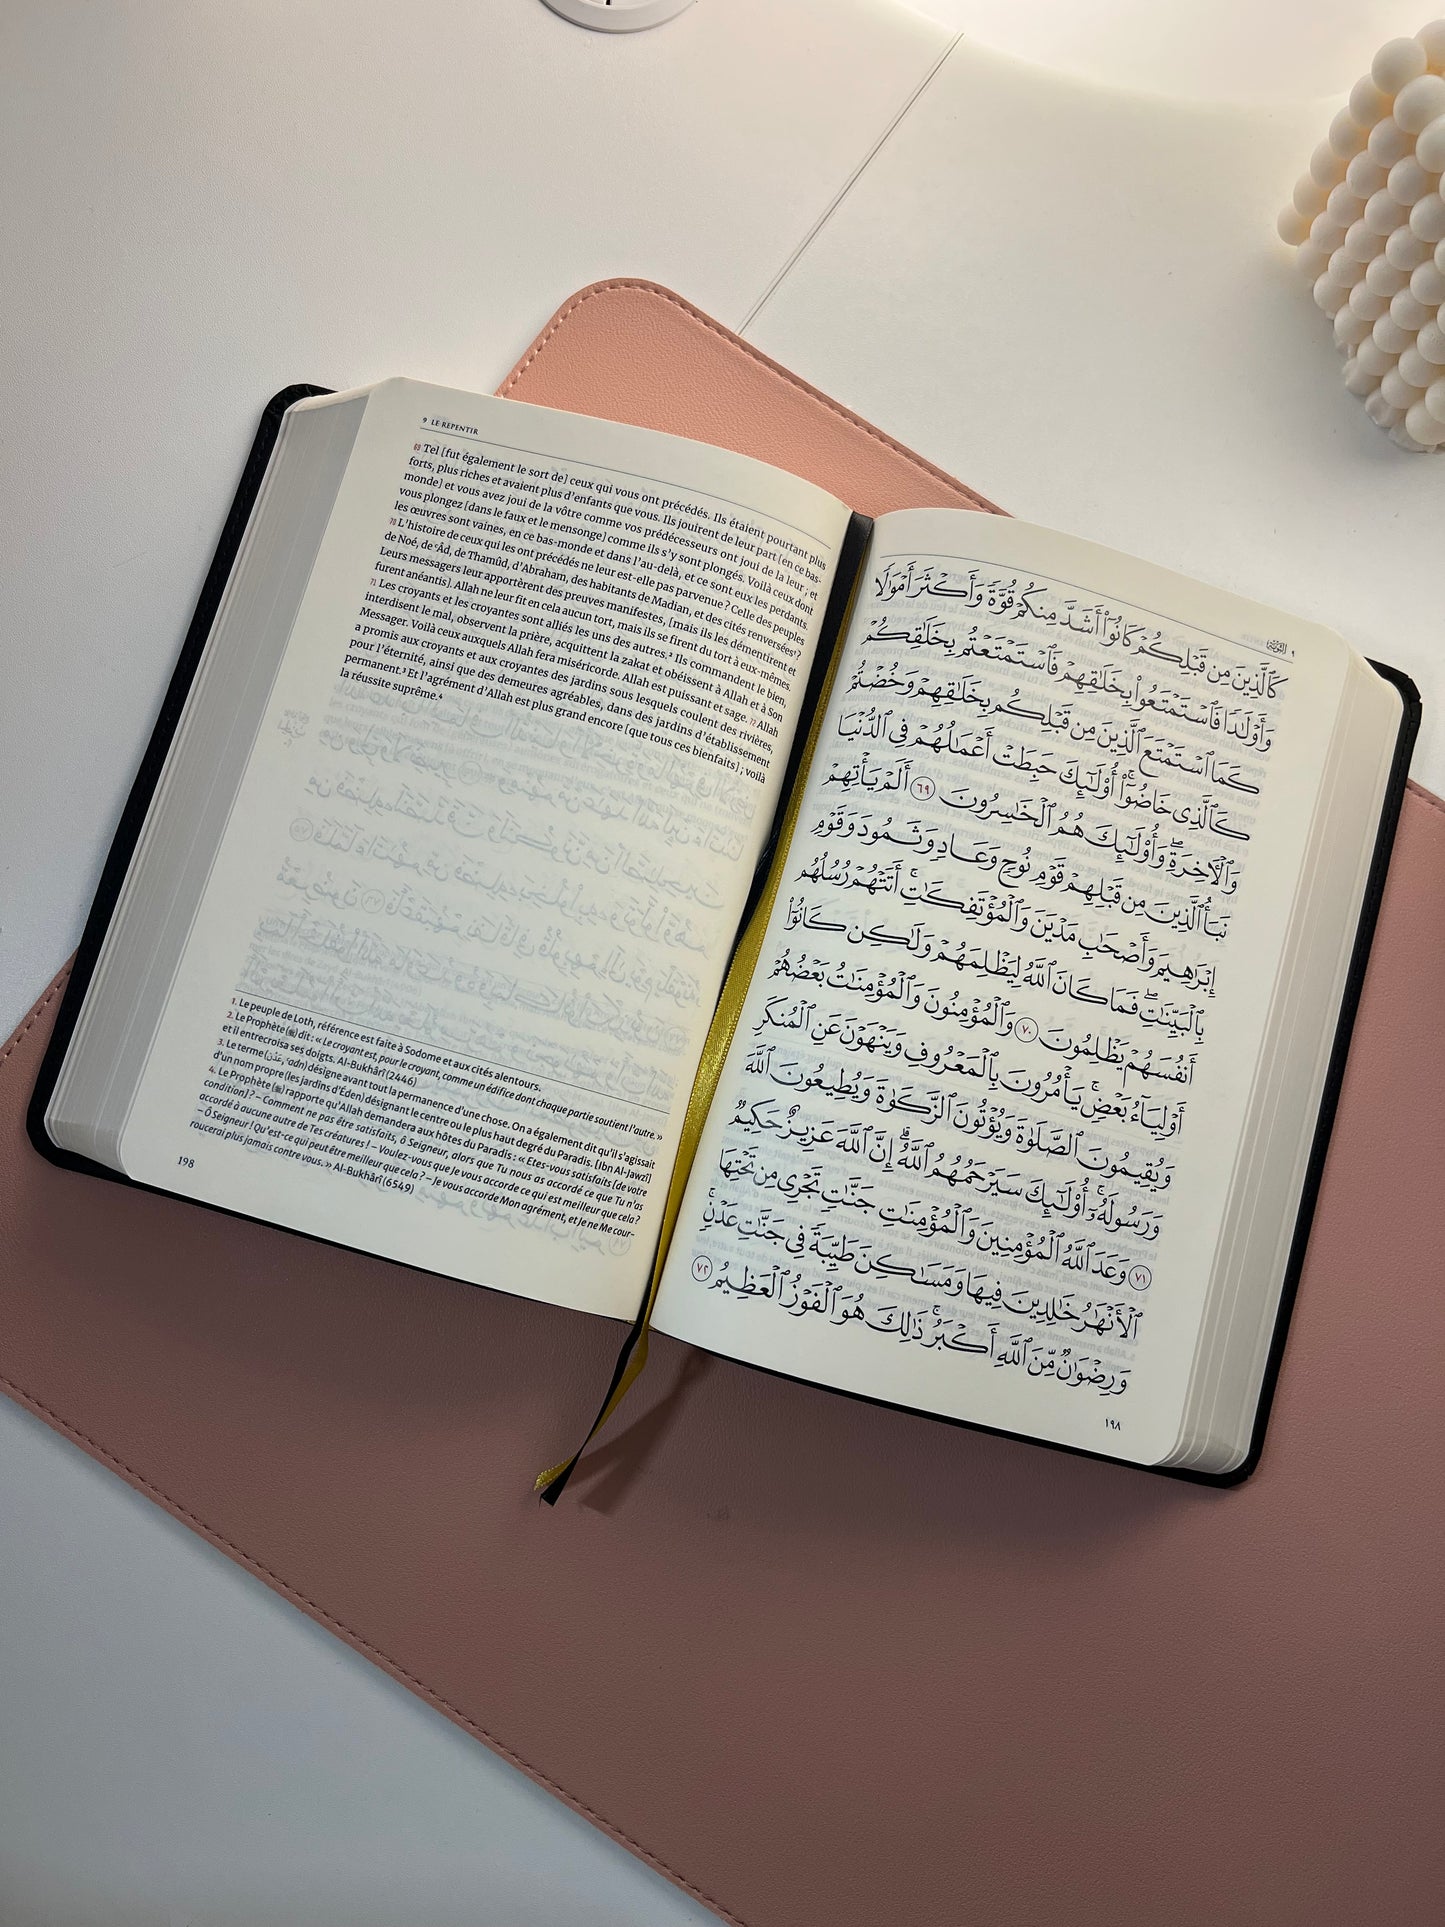 9 LE REPENTIR
69 Tel [fut également le sort de] ceux qui vous ont précédés. Ils étaient pourtant plus
forts, plus riches et avaient plus d'enfants que vous. Ils jouirent de leur part [en ce bas-
monde] et vous avez joui de la vôtre comme vos prédécesseurs ont joui de la leur ; et
vous plongez [dans le faux et le mensonge] comme ils s'y sont plongés. Voilà ceux dont
les œuvres sont vaines, en ce bas-monde et dans l'au-delà, et ce sont eux les perdants.
70 L'histoire de ceux qui les ont précédés ne leur est-elle pas parvenue ? Celle des peuples
de Noé, de ʿÂd, de Thamûd, d'Abraham, des habitants de Madian, et des cités renversées¹ ?
Leurs messagers leur apportèrent des preuves manifestes, [mais ils les démentirent et
furent anéantis]. Allah ne leur fit en cela aucun tort, mais ils se firent du tort à eux-mêmes.
71 Les croyants et les croyantes sont alliés les uns des autres.² Ils commandent le bien,
interdisent le mal, observent la prière, acquittent la zakat et obéissent à Allah et à Son
Messager. Voilà ceux auxquels Allah fera miséricorde. Allah est puissant et sage. 72 Allah
a promis aux croyants et aux croyantes des jardins sous lesquels coulent des rivières,
pour l'éternité, ainsi que des demeures agréables, dans des jardins d'établissement
permanent.³ Et l'agrément d'Allah est plus grand encore [que tous ces bienfaits] ; voilà
la réussite suprême.⁴
1. Le peuple de Loth, référence est faite à Sodome et aux cités alentours.
2. Le Prophète (ﷺ) dit : « Le croyant est, pour le croyant, comme un édifice dont chaque partie soutient l'autre. »
et il entrecroisa ses doigts. Al-Bukhârî (2446)
3. Le terme (عَدْن, ʿadn) désigne avant tout la permanence d'une chose. On a également dit qu'il s'agissait
d'un nom propre (les jardins d'Éden) désignant le centre ou le plus haut degré du Paradis. [Ibn Al-Jawzî]
4. Le Prophète (ﷺ) rapporte qu'Allah demandera aux hôtes du Paradis : « Etes-vous satisfaits [de votre
condition] ? – Comment ne pas être satisfaits, ô Seigneur, alors que Tu nous as accordé ce que Tu n'as
accordé à aucune autre de Tes créatures ! – Voulez-vous que Je vous accorde ce qui est meilleur que cela ?
– Ô Seigneur ! Qu'est-ce qui peut être meilleur que cela ? – Je vous accorde Mon agrément, et Je ne Me cour-
roucerai plus jamais contre vous. » Al-Bukhârî (6549)
198
٩ التَّوْبَة
كَٱلَّذِينَ مِن قَبْلِكُمْ كَانُوٓا۟ أَشَدَّ مِنكُمْ قُوَّةً وَأَكْثَرَ أَمْوَٰلًا
وَأَوْلَٰدًا فَٱسْتَمْتَعُوا۟ بِخَلَٰقِهِمْ فَٱسْتَمْتَعْتُم بِخَلَٰقِكُمْ
كَمَا ٱسْتَمْتَعَ ٱلَّذِينَ مِن قَبْلِكُم بِخَلَٰقِهِمْ وَخُضْتُمْ
كَٱلَّذِى خَاضُوٓا۟ أُو۟لَٰٓئِكَ حَبِطَتْ أَعْمَٰلُهُمْ فِى ٱلدُّنْيَا
وَٱلْءَاخِرَةِ وَأُو۟لَٰٓئِكَ هُمُ ٱلْخَٰسِرُونَ ٦٩ أَلَمْ يَأْتِهِمْ
نَبَأُ ٱلَّذِينَ مِن قَبْلِهِمْ قَوْمِ نُوحٍ وَعَادٍ وَثَمُودَ وَقَوْمِ
إِبْرَٰهِيمَ وَأَصْحَٰبِ مَدْيَنَ وَٱلْمُؤْتَفِكَٰتِ أَتَتْهُمْ رُسُلُهُم
بِٱلْبَيِّنَٰتِ فَمَا كَانَ ٱللَّهُ لِيَظْلِمَهُمْ وَلَٰكِن كَانُوٓا۟
أَنفُسَهُمْ يَظْلِمُونَ ٧٠ وَٱلْمُؤْمِنُونَ وَٱلْمُؤْمِنَٰتُ بَعْضُهُمْ
أَوْلِيَآءُ بَعْضٍ يَأْمُرُونَ بِٱلْمَعْرُوفِ وَيَنْهَوْنَ عَنِ ٱلْمُنكَرِ
وَيُقِيمُونَ ٱلصَّلَوٰةَ وَيُؤْتُونَ ٱلزَّكَوٰةَ وَيُطِيعُونَ ٱللَّهَ
وَرَسُولَهُۥٓ أُو۟لَٰٓئِكَ سَيَرْحَمُهُمُ ٱللَّهُ إِنَّ ٱللَّهَ عَزِيزٌ حَكِيمٌ
٧١ وَعَدَ ٱللَّهُ ٱلْمُؤْمِنِينَ وَٱلْمُؤْمِنَٰتِ جَنَّٰتٍ تَجْرِى مِن تَحْتِهَا
ٱلْأَنْهَٰرُ خَٰلِدِينَ فِيهَا وَمَسَٰكِنَ طَيِّبَةً فِى جَنَّٰتِ عَدْنٍ
وَرِضْوَٰنٌ مِّنَ ٱللَّهِ أَكْبَرُ ذَٰلِكَ هُوَ ٱلْفَوْزُ ٱلْعَظِيمُ ٧٢
١٩٨